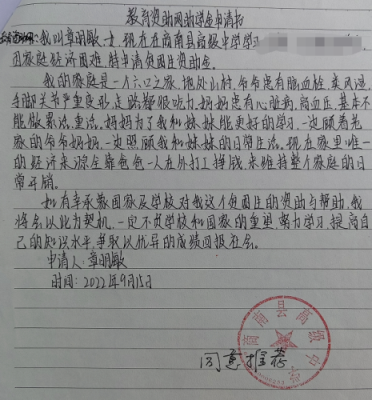 教育资助国助学金申请书
我叫章明敏,女,现在在商南县高级中学学习
因家庭经济困难,特申请贫困生资助金。
我的家庭是一个六口之家,地处山村,爷爷患有脑血栓,类风湿,
手脚关节严重变形,走路都很吃力,妈妈患有心脏病,高血压,基本不
能做累活,重活,妈妈为了我和妹妹能更好的学习,一边顾着老
家的爷爷奶奶,一边照顾我和妹妹的日常生活,现在家里唯一
的经济来源全靠爸爸一人在外打工挣钱,来维持整个家庭的日
常开销。
如有幸承教国家及学校对我这个贫困生的资助与帮助,我
将会以此为契机,一定不负学校和国家的重望,努力学习,提高自
己的知识水平,争取以优异的成绩回报社会。
申请人:章明敏
时间:2022年9月15日
商南县高级中学
同意推荐